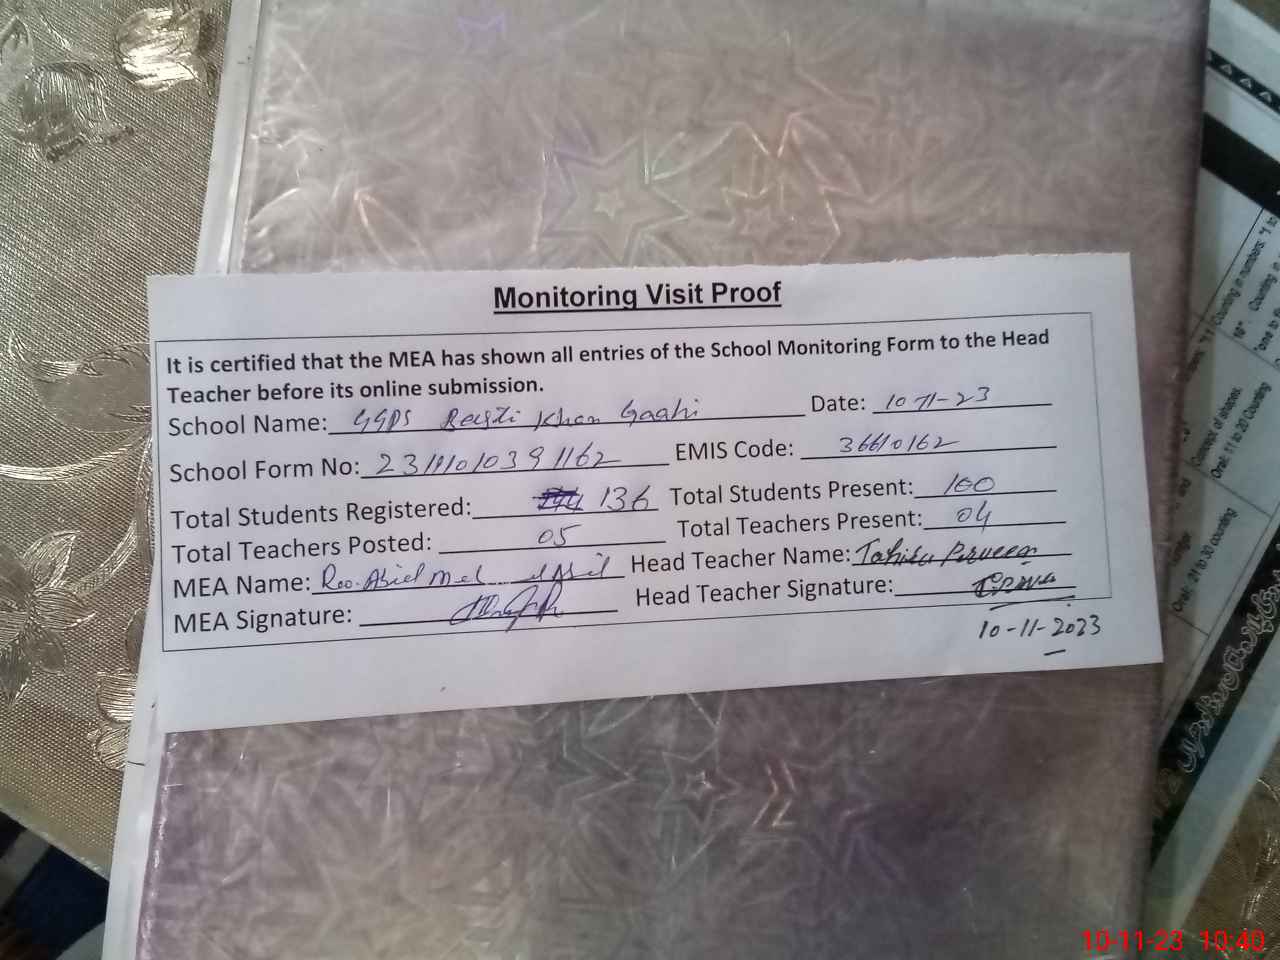 Monitoring Visit Proof
It is certified that the MEA has shown all entries of the School Monitoring Form to the Head
Teacher before its online submission.
School Name: GGPS Khan Date: 10-11-23
School Form No: EMIS Code: 36610162
Total Students Registered: 136 Total Students Present: 100
Total Teachers Posted: 05 Total Teachers Present: 04
MEA Name: Head Teacher Name: Tahira Perveen
MEA Signature: Head Teacher Signature:
10-11-2023
Counting in numbers:
Oral: 11 to 20 Counting
Oral: 21 to 30 counting
10-11-23 10:40